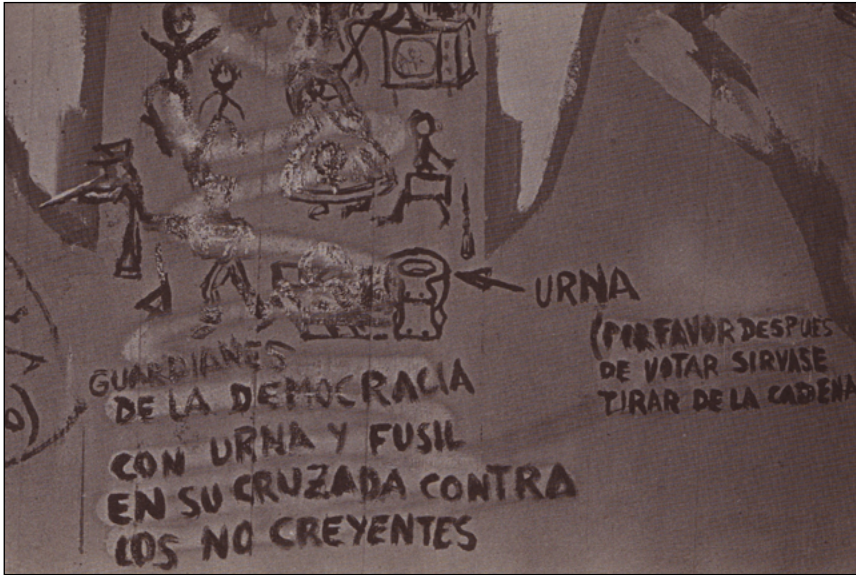 URNA
(POR FAVOR DESPUES
DE VOTAR SIRVASE
TIRAR DE LA CADENA
GUARDIANES
DE LA DEMOCRACIA
CON URNA Y FUSIL
EN SU CRUZADA CONTRA
LOS NO CREYENTES